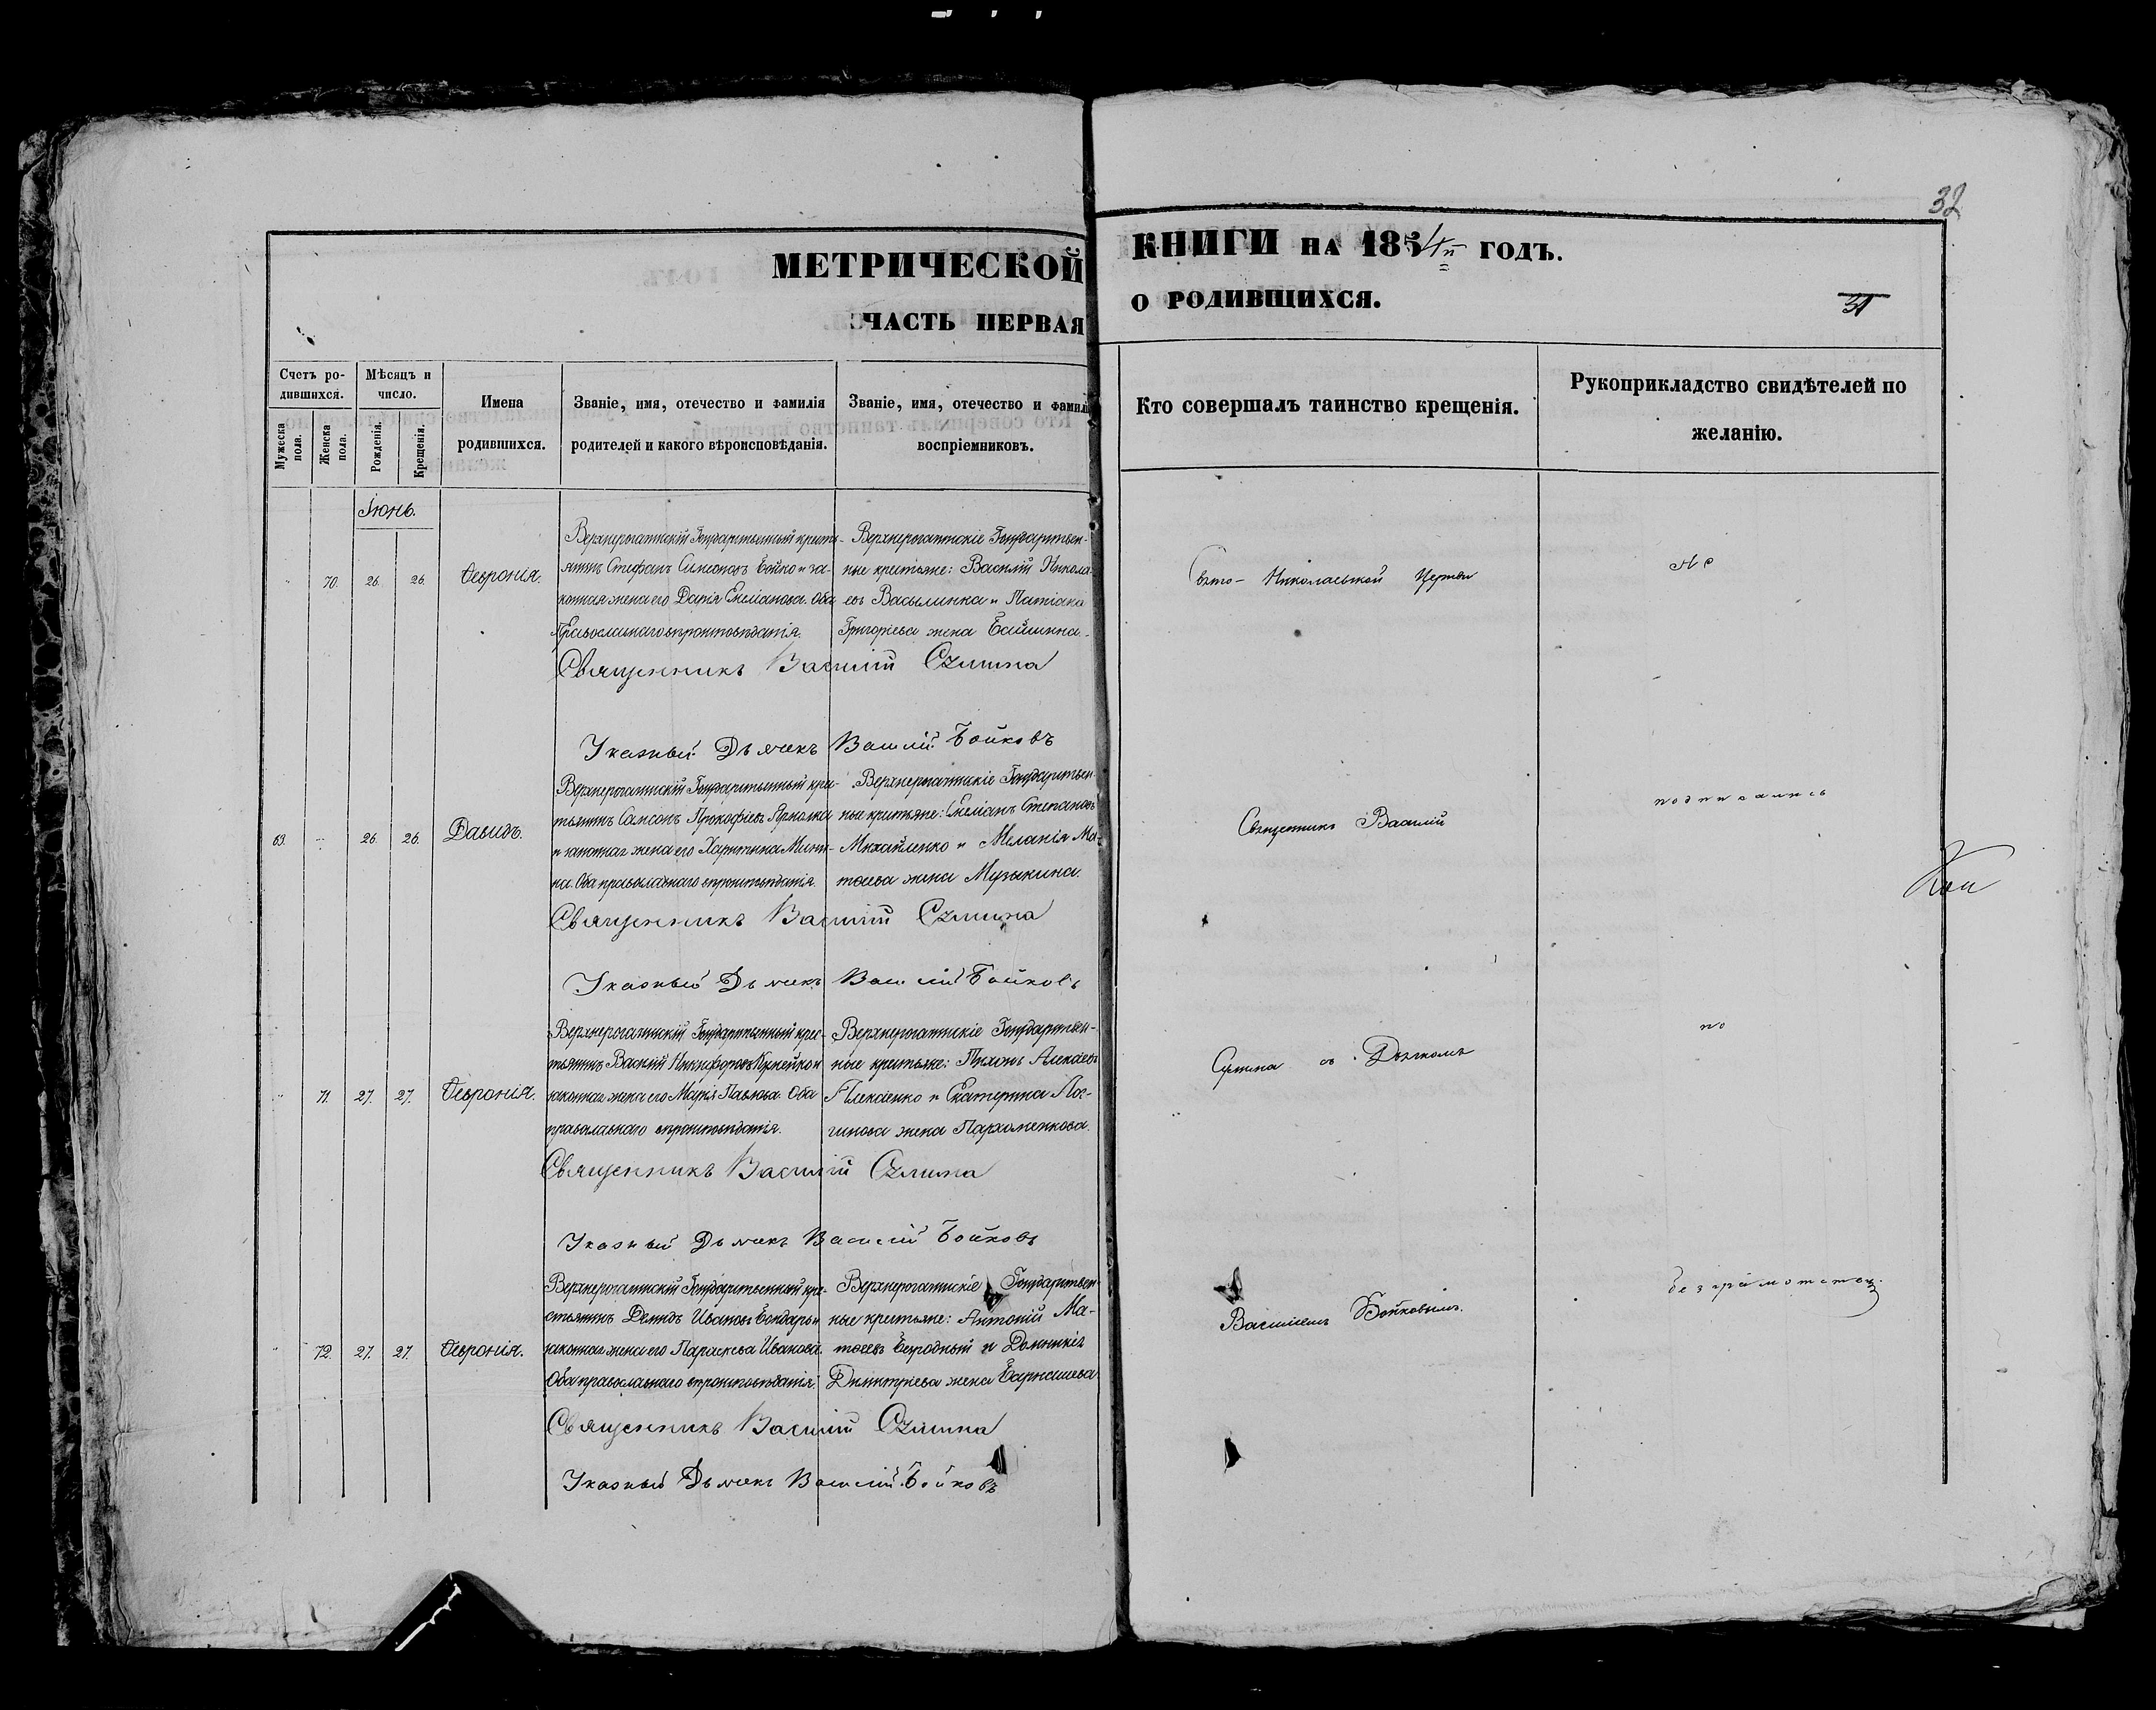 32
МЕТРИЧЕСКОЙ КНИГИ НА 1854й ГОДЪ.
ЧАСТЬ ПЕРВАЯ О РОДИВШИХСЯ.
31
Счетъ родившихся.
Мужеска пола.
Женска пола.
Мѣсяцъ и число.
Рожденія.
Крещенія.
Имена родившихся.
Званіе, имя, отечество и фамилія
родителей и какого вѣроисповѣданія.
Званіе, имя, отечество и фамилія
воспріемниковъ.
Кто совершалъ таинство крещенія.
Рукоприкладство свидѣтелей по
желанію.
Іюнь.
70. 26. 26. Февронія.
Верхнерогачикскій Государственный кресть-
янинъ Стефанъ Симоновъ Бойко и за-
конная жена его Дарія Емеліанова. Оба
Православнаго вѣроисповѣданія.
Верхнерогачикскіе Государствен-
ные крестьяне: Василій Никола-
евъ Васылинка и Татіана
Григоріева жена
Свято-Николаевской Церкви
не
Священникъ Василій
Указный Дьячекъ Василій Бойковъ
63. 26. 26. Давидъ.
Верхнерогачикскій Государственный кре-
стьянинъ Самсонъ Прокофіевъ Ярмолка
и законная жена его Харитина
Оба православнаго вѣроисповѣданія.
Верхнерогачикскіе Государствен-
ные крестьяне: Емеліанъ Степановъ
Михайленко и Меланія Ма-
тѳеева жена Музыкина.
Священникъ Василій
подписались
Священникъ Василій
Указный Дьячекъ Василій Бойковъ
71. 27. 27. Февронія.
Верхнерогачикскій Государственный крес-
тьянинъ Василій Никифоровъ и
законная жена его Марія Павлова. Оба
православнаго вѣроисповѣданія.
Верхнерогачикскіе Государствен-
ные крестьяне: Тихонъ Алексіевъ
Алексіенко и Екатерина Лог-
гинова жена Пархоменкова.
съ Дьячкомъ
по
Священникъ Василій
Указный Дьячекъ Василій Бойковъ
72. 27. 27. Февронія.
Верхнерогачикскій Государственный кре-
стьянинъ Демидъ Ивановъ Бондарь и
законная жена его Параскева Иванова.
Оба православнаго вѣроисповѣданія.
Верхнерогачикскіе Государствен-
ные крестьяне: Антоній Ма-
тѳеевъ Безродный и Домникія
Димитріева жена
Василіемъ Бойковымъ.
безграмотству.
Священникъ Василій
Указный Дьячекъ Василій Бойковъ